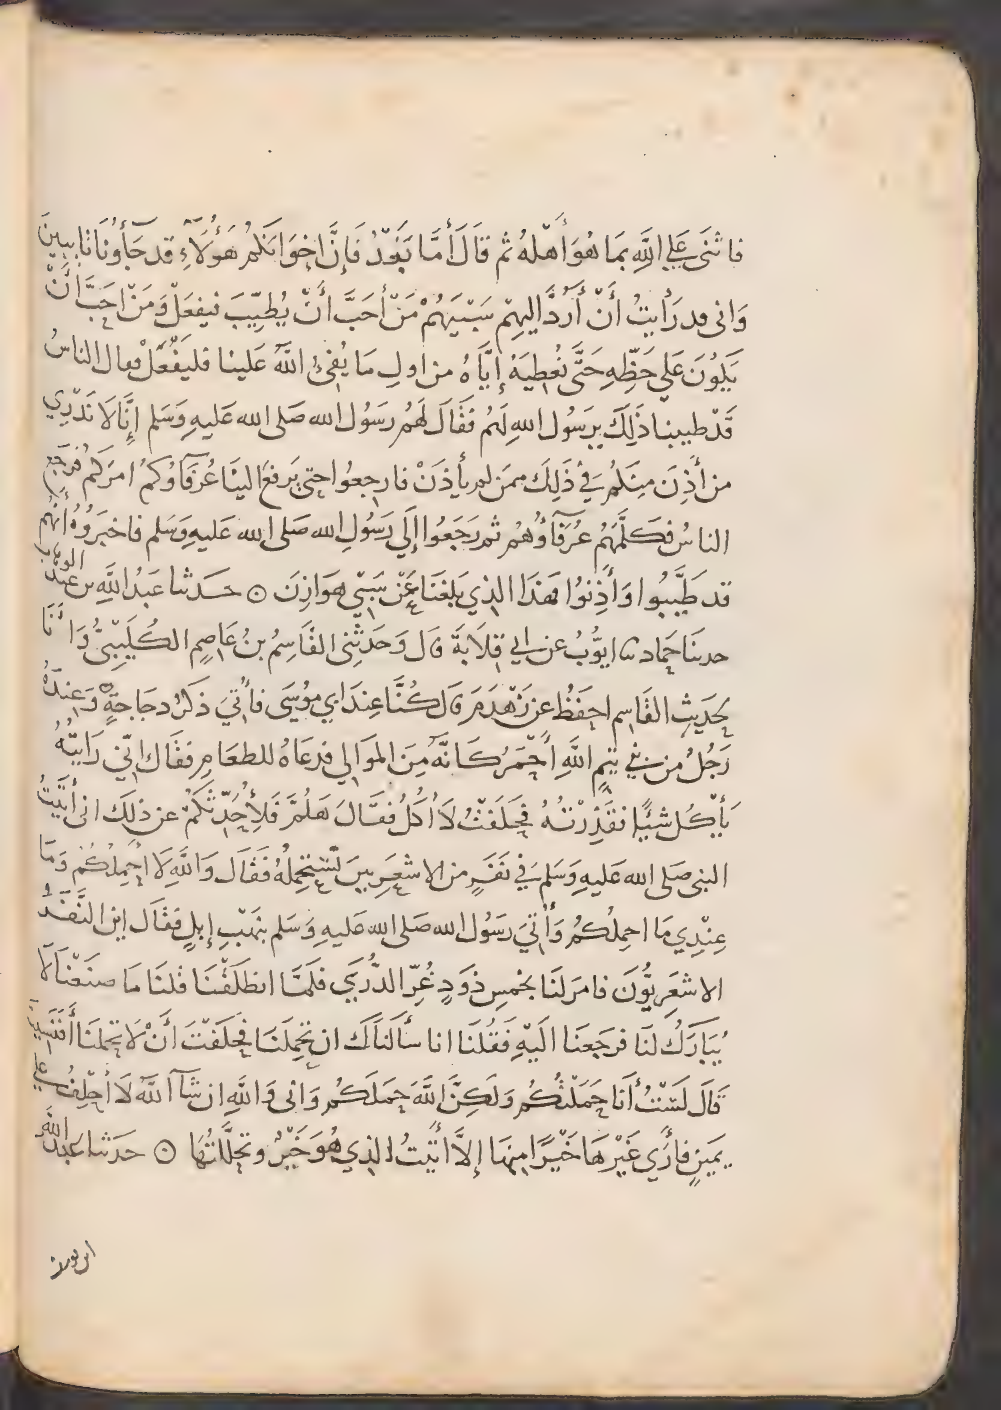 فاثنى على الله بما هو أهله ثم قال أما بعد فإن إخوانكم هؤلاء قد جاؤنا تايبين
وانى قد رأيت أن أرد اليهم سبيهم من أحب أن يطيب فيفعل ومن احب أن
يكون على حظه حتى نعطيه إياه من اول ما يفئ الله علينا فليفعل فقال الناس
قد طيبنا ذلك يرسول الله لهم فقال لهم رسول الله صلى الله عليه وسلم إنا لا ندري
من أذن منكم في ذلك ممن لم يأذن فارجعوا حتى يرفع الينا عرفاؤكم امركم فرجع
الناس فكلمهم عرفاؤهم ثم رجعوا إلى رسول الله صلى الله عليه وسلم فاخبروه أنهم
قد طيبوا وأذنوا فهذا الذي بلغنا عن سبي هوازن ۞ حدثنا عبد الله بن عبد الوهاب
حدثنا حماد ثنا ايوب عن ابي قلابة قال وحدثني القاسم بن عاصم الكليبي وأنا
بحديث القاسم احفظ عن زهدم قال كنا عند ابي موسى فأتي ذكر دجاجة وعنده
رجل من بني تيم الله أحمر كانه من الموالي فدعاه للطعام فقال اني رايته
يأكل شيئا فقذرته فحلفت لا اكل فقال هلم فلأحدثكم عن ذلك انى أتيت
النبى صلى الله عليه وسلم في نفر من الاشعريين نستحمله فقال والله لا احملكم وما
عندي ما احملكم وأتي رسول الله صلى الله عليه وسلم بنهب إبل فقال اين النفر
الاشعريون فامر لنا بخمس ذود غر الذري فلما انطلقنا قلنا ما صنعنا لا
يبارك لنا فرجعنا اليه فقلنا انا سألناك ان تحملنا فحلفت أن لا تحملنا أفنسيت
قال لست أنا حملتكم ولكن الله حملكم وانى والله ان شآ الله لا أحلف على
يمين فأري غيرها خيرا منها إلا أتيت الذي هو خير وتحللتها ۞ حدثنا عبد الله
ابن يوسف